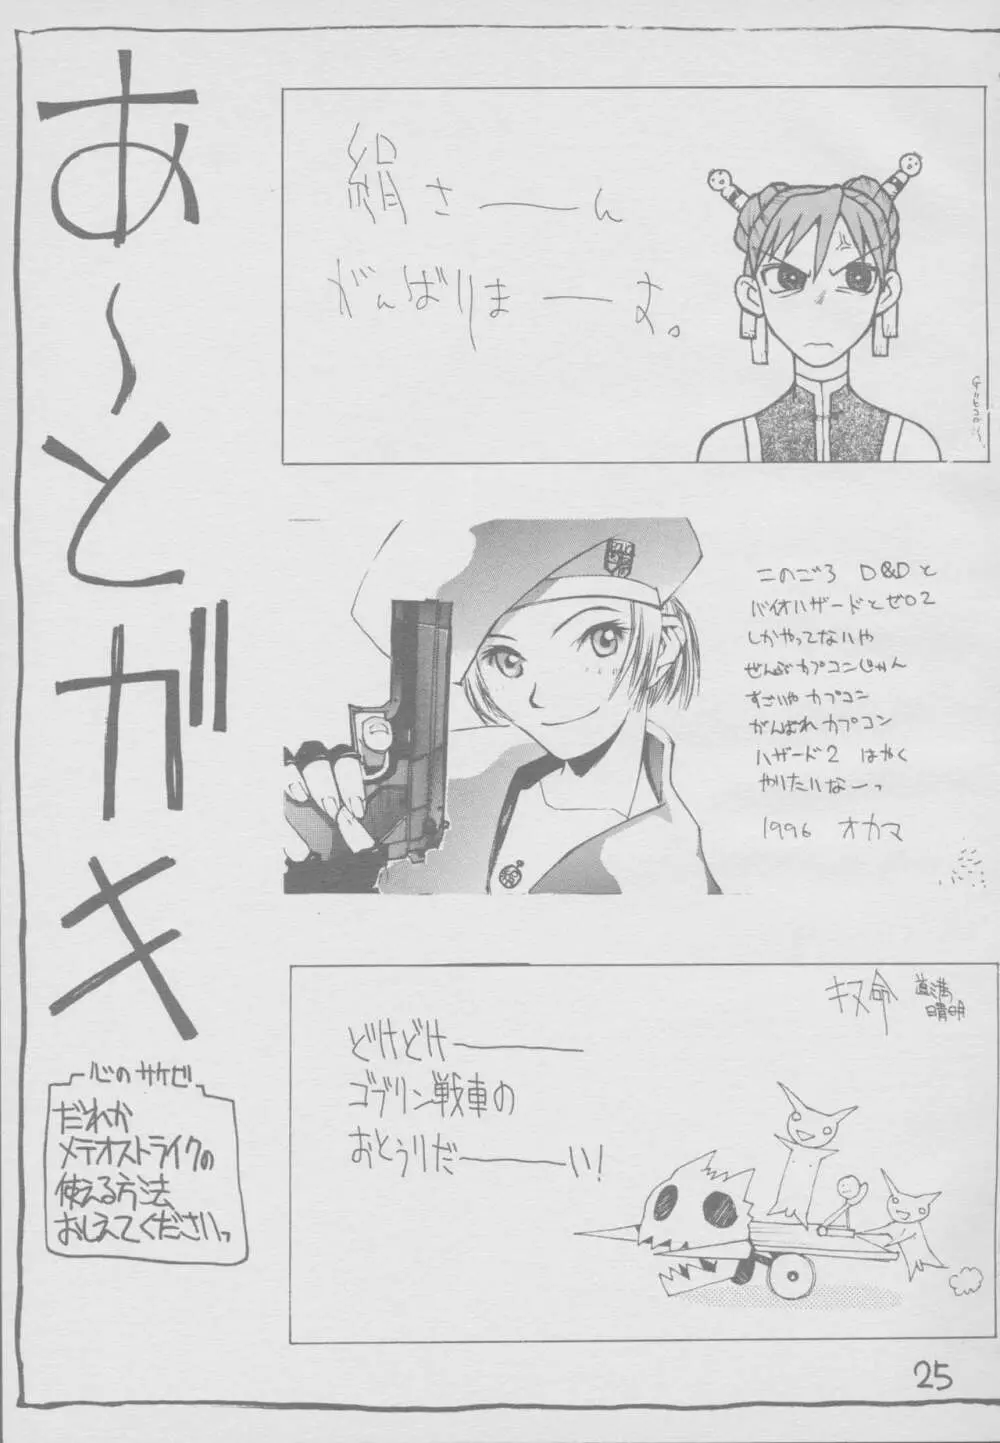 あ～とがキ
絹さーーん
がんばりまーーす。
このごろ D&Dと
バイオハザードとゼロ2
しかやってないや
ぜんぶカプコンじゃん
すごいやカプコン
がんばれカプコン
ハザード2 はやく
やりたいなーっ
1996 オカマ
道満
晴明
どけどけーーー
ゴブリン戦車の
おとうりだーーーい!
心のサケビ
だれか
メテオストライクの
使える方法
おしえてくださいっ
25